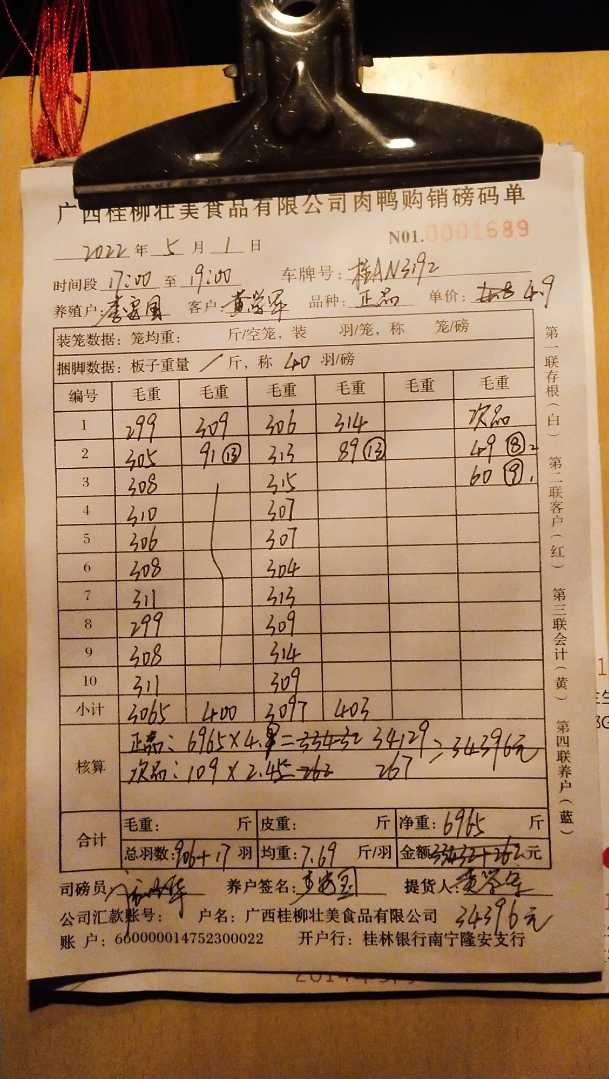 广西桂柳壮美食品有限公司肉鸭购销磅码单
2022 年 5 月 1 日 N01.0001689
时间段 17:00 至 19:00 车牌号: 桂AN3192
养殖户: 李安国 客户: 黄学军 品种: 正品 单价: 4.9
装笼数据: 笼均重: 斤/空笼, 装 羽/笼, 称 笼/磅
捆脚数据: 板子重量 / 斤, 称 40 羽/磅
编号 毛重 毛重 毛重 毛重 毛重 毛重
1 299 309 306 314 次品
2 305 91 ⑬ 313 89 ⑬ 49 ⑧ 2
3 308 315 60 ⑨ 1
4 310 307
5 306 307
6 308 304
7 311 313
8 299 309
9 308 314
10 311 309
小计 3065 400 3097 403
核算 正品: 6965×4.9=33432 34129
次品: 109×2.45=262 267 =34396元
合计 毛重: 斤 皮重: 斤 净重: 6965 斤
总羽数: 906+17 羽 均重: 7.69 斤/羽 金额 33432+262 元
司磅员 养户签名: 李安国 提货人: 黄学军
公司汇款账号: 户名: 广西桂柳壮美食品有限公司 34396元
账 户: 660000014752300022 开户行: 桂林银行南宁隆安支行
第一联存根(白) 第二联客户(红) 第三联会计(黄) 第四联养户(蓝)